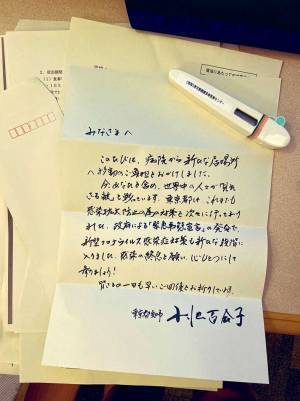 みなさまへ
このたびは、病院から新たな居場所
へ移動のご負担をおかけしました。
今、あなたを含め、世界中の人々が「見え
ざる敵」と戦っています。東京都は、これまでも
感染拡大防止の為の対策を次々に行ってまい
りました。政府による「緊急事態宣言」の発令で、
新型コロナウイルス感染症対策も新たな段階に
入りました。感染の終息を願い、心ひとつにして
参りましょう!
皆さまの一日も早いご回復をお祈りしています。
東京都知事 小池百合子